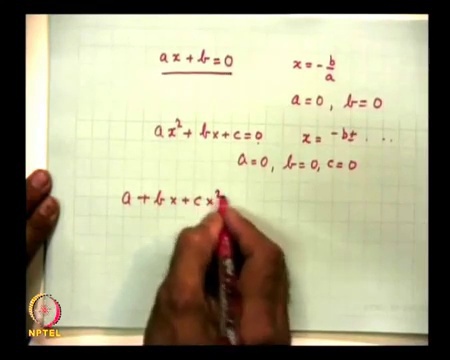 ax + b = 0    x = -b/a
a = 0, b = 0
ax² + bx + c = 0    x = -b± ...
a = 0, b = 0, c = 0
a + bx + cx²
NPTEL